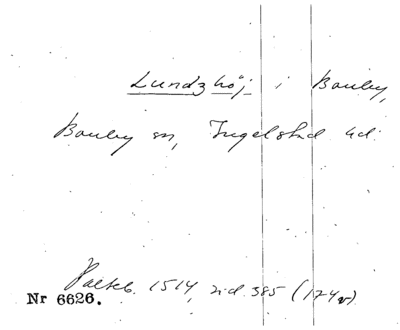 Lundzhöj i Bouley,
Bouley sn, Ingelstad hd.
Palteb. 1514, sid. 385 (174v)
Nr 6626.